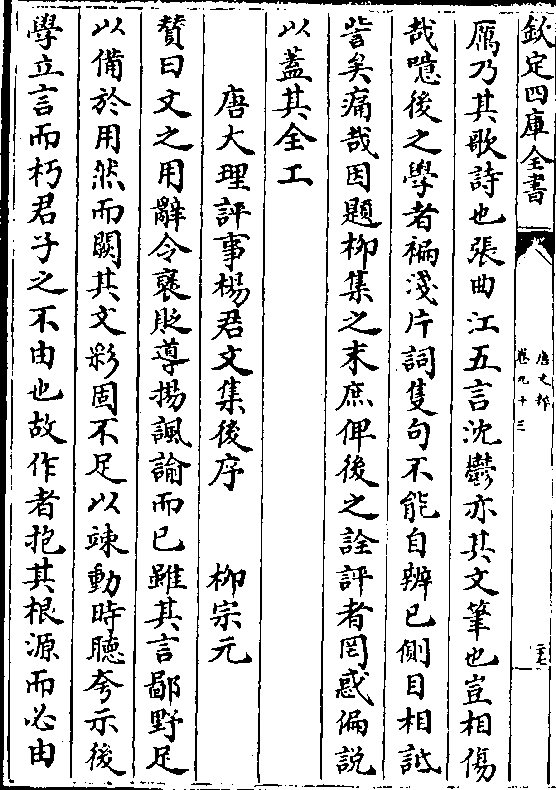 欽定四庫全書
唐文粹
卷九十三
厲乃其歌詩也張曲江五言沈鬱亦其文筆也豈相傷
哉噫後之學者褊淺片詞隻句不能自辨已側目相詆
訾矣痛哉因題柳集之末庶俾後之詮評者罔惑偏説
以蓋其全工
唐大理評事楊君文集後序 柳宗元
賛曰文之用辭令襃貶導揚諷諭而已雖其言鄙野足
以備於用然而闕其文彩固不足以竦動時聽夸示後
學立言而朽君子之不由也故作者抱其根源而必由